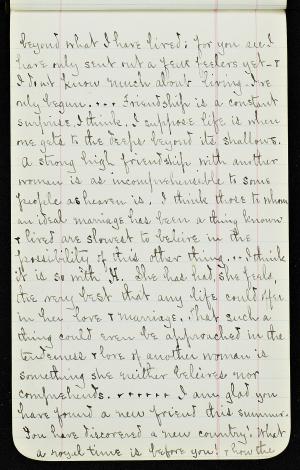 beyond what I have lived; for you see I
have only sent out a few feelers yet - &
I dont know much about living. I've
only begun. ... Friendship is a constant
surprise I think. I suppose life is when
one gets to the deeps beyond its shallows.
A strong high friendship with another
woman is as incomprehensible to some
people as heaven is. I think those to whom
an ideal marriage has been a thing known
& lived are slowest to beleive in the
possibility of this other thing... I think
it is so with H. She has had, she feels,
the very best that any life could offer
in her love & marriage. That such a
thing could even be approached in the
tenderness & love of another woman is
something she neither beleives nor
comprehends. ...... I am glad you
have found a new friend this summer.
You have discovered a new country! What
a royal time is before you! & how the